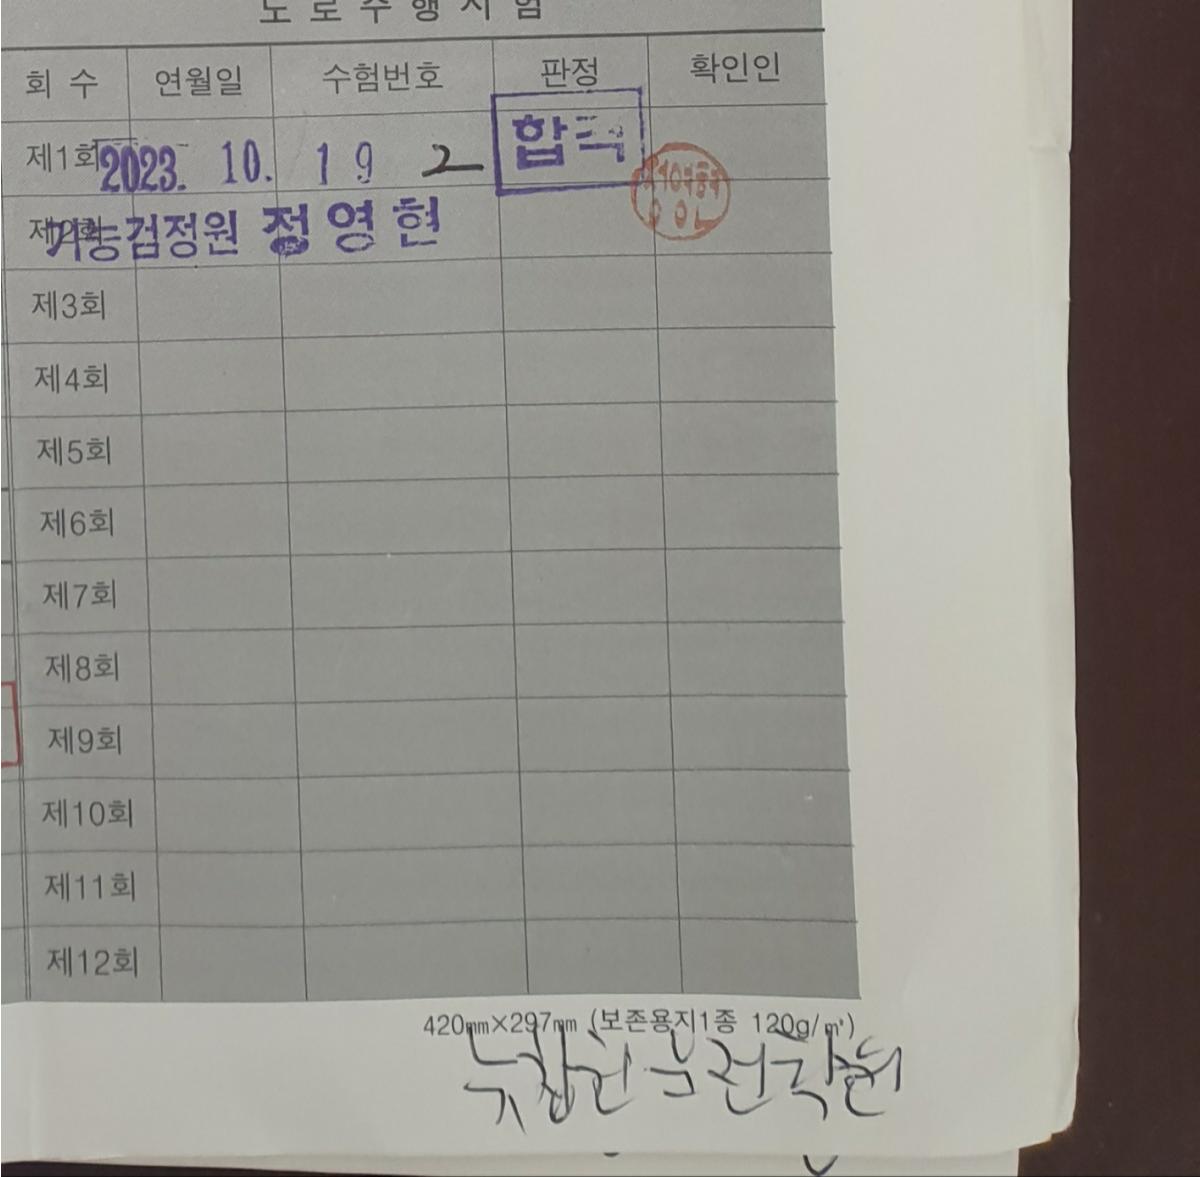 도로주행시험
회 수 연월일 수험번호 판정 확인인
제1회 2023. 10. 19 2 합격
제2회 기능검정원 정영현
제3회
제4회
제5회
제6회
제7회
제8회
제9회
제10회
제11회
제12회
420mm×297mm (보존용지1종 120g/㎡)
운전학원